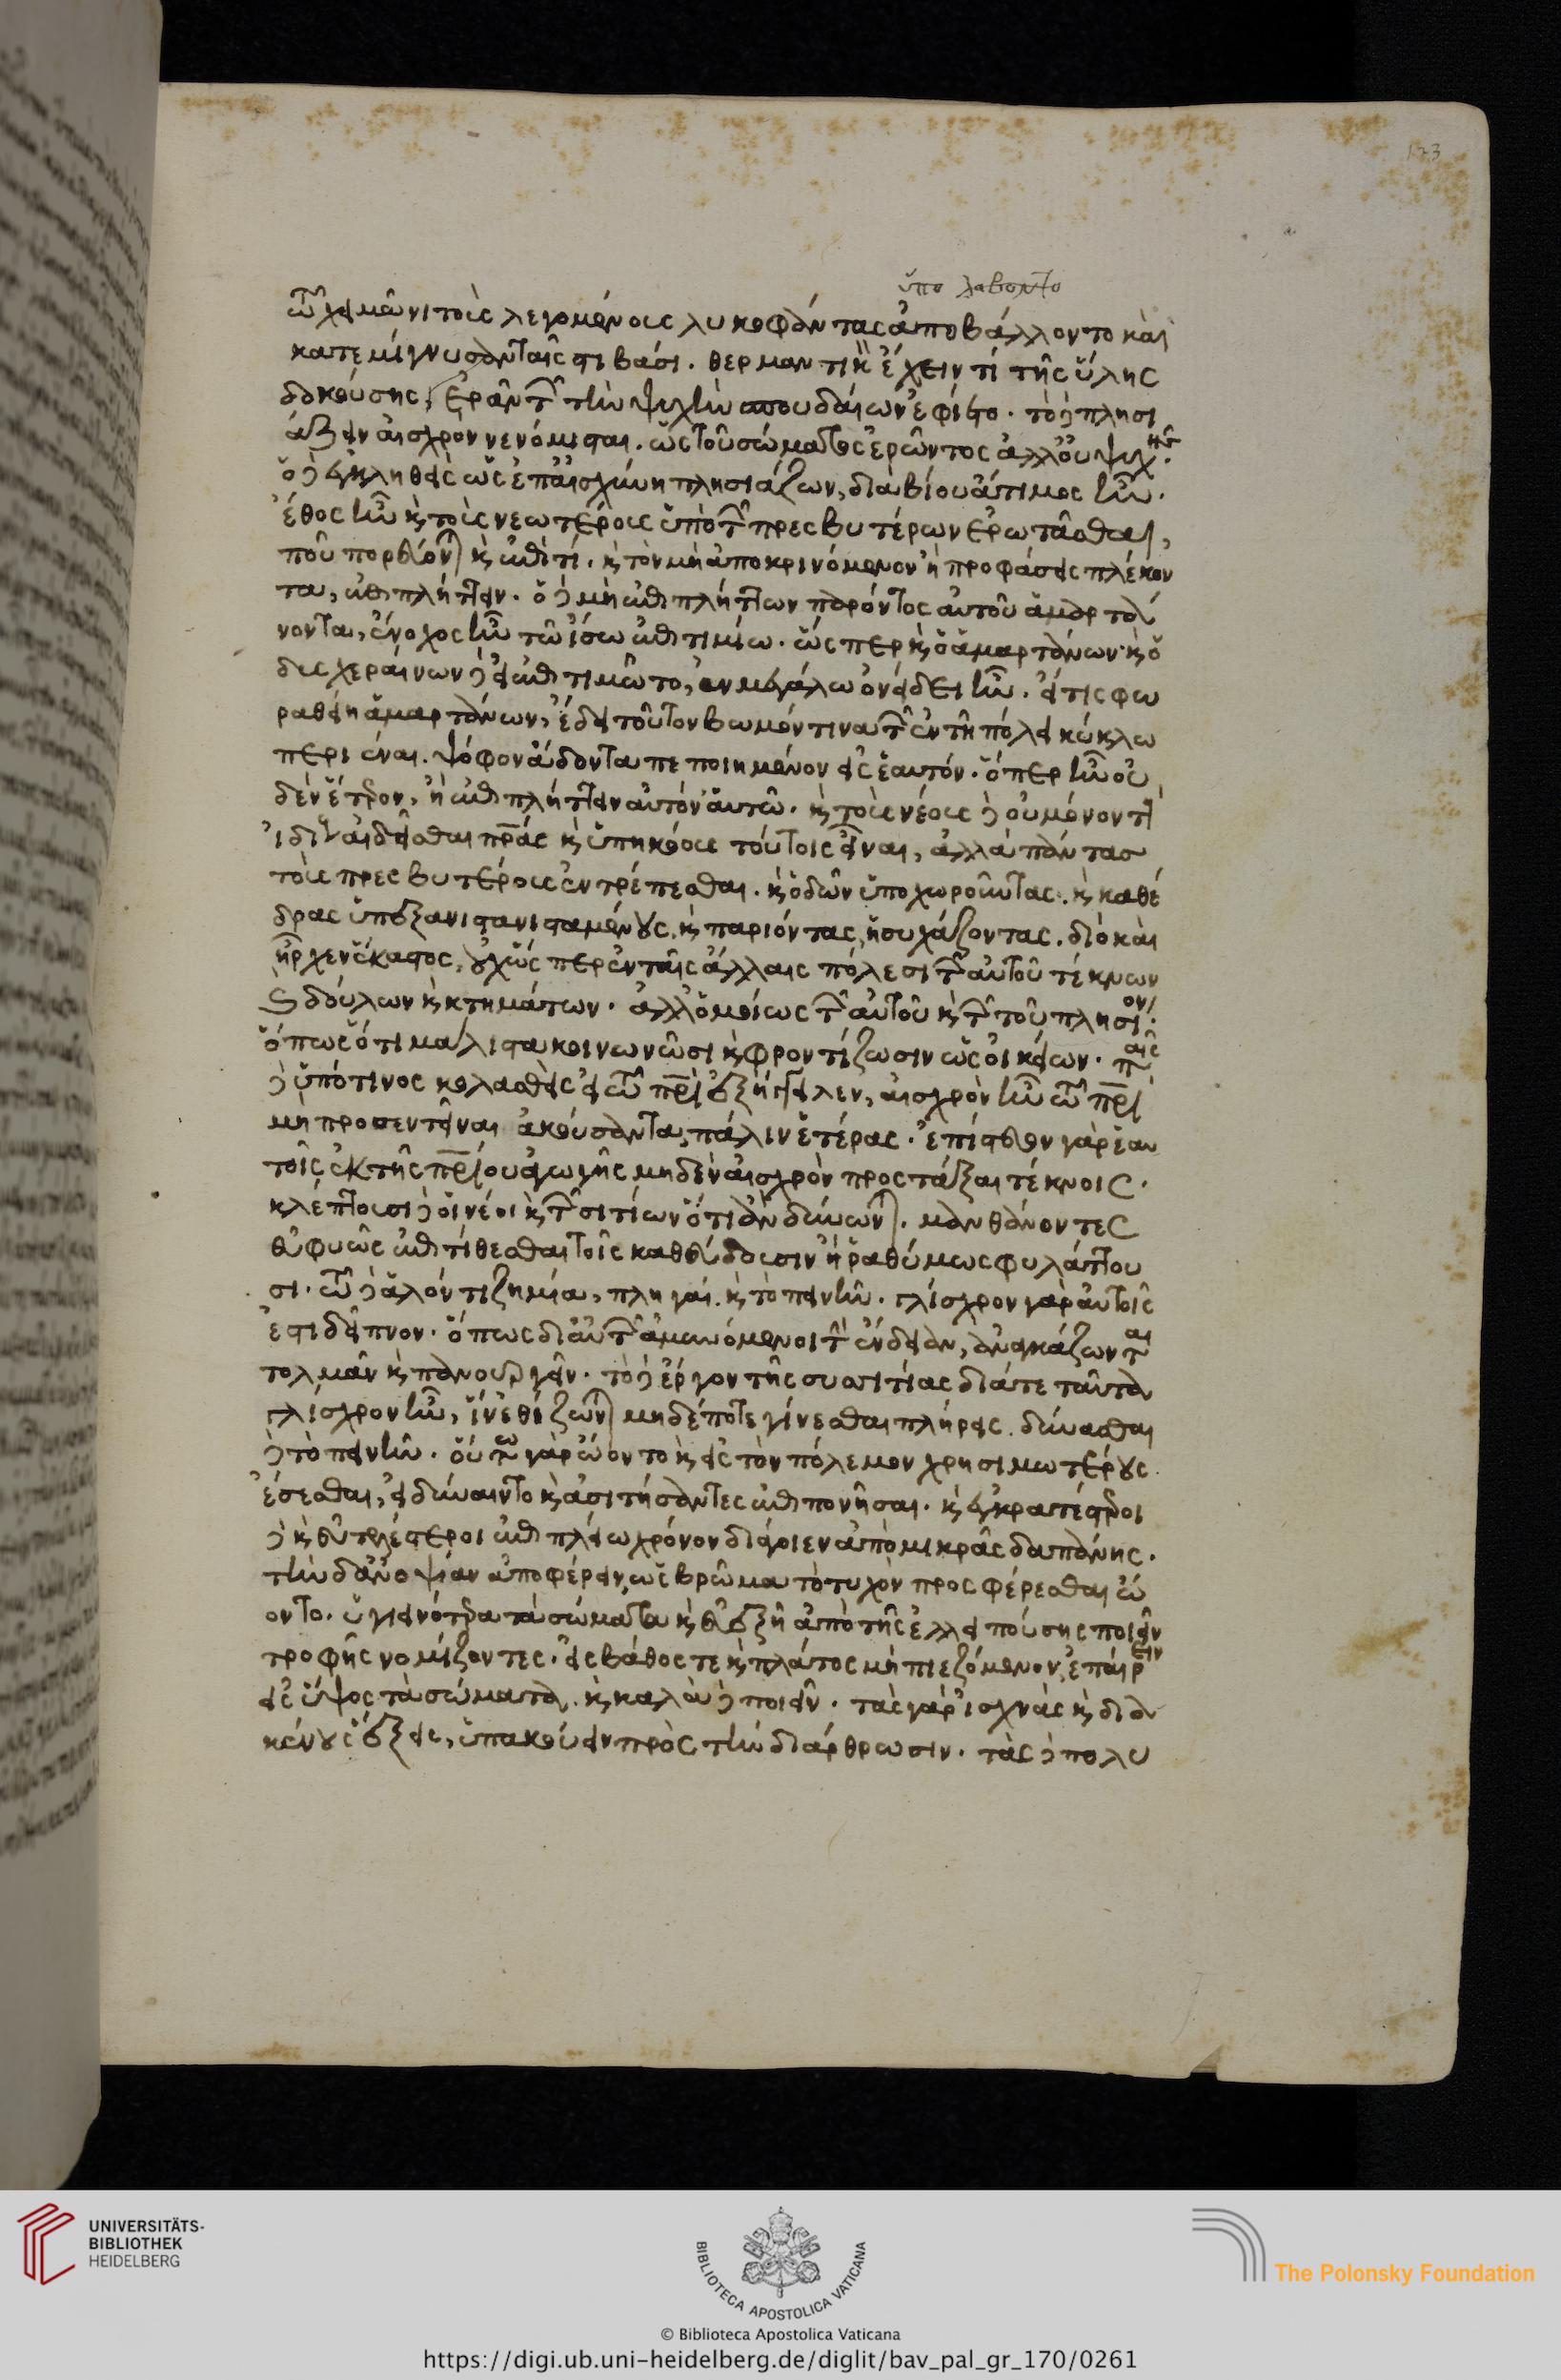 173
ὑπο λαβοντο
τῷ χειμῶνι τοὺς λεγομένους λυκοφάντας ἀπεβάλλοντο καὶ
κατεμίγνυσαν ταῖς στιβάσι. θερμαντικὸν ἔχειν τί τῆς ὕλης
δοκούσης. ἐρᾶν τῶν τὴν ψυχὴν σπουδαίων ἐφίετο. τὸ δὲ πλησι
άζειν αἰσχρὸν νενόμισται. ὡς τοῦ σώματος ἐρῶντος ἀλλ' οὐ ψυχῆς.
ὁ δὲ ἐγκληθεὶς ὡς ἐπ' αἰσχύνη πλησιάζων, διὰ βίου ἄτιμος ἦν.
ἔθος ἦν καὶ τοὺς νεωτέρους ὑπὸ τῶν πρεσβυτέρων ἐρωτᾶσθαι,
ποῦ πορεύονται καὶ ἐπὶ τί. καὶ τὸν μὴ ἀποκρινόμενον ἢ προφάσεις πλέκον
τα, ἐπιπλήττειν. ὁ δὲ μὴ ἐπιπλήττων παρόντος αὐτοῦ ἁμαρτά
νοντα, ἔνοχος ἦν τῶ ἴσω ἐπιτιμίω. ὥσπερ καὶ ὁ ἁμαρτάνων. καὶ ὁ
δυσχεραίνων δὲ εἰ ἐπιτιμῶτο, ἐν μεγάλω ὀνείδει ἦν. εἴ τις φω
ραθείη ἁμαρτάνων, ἔδει τοῦτον βωμόν τινα τῶν ἐν τῆ πόλει κύκλω
περιιέναι. ψόφον ἄδοντα πεποιημένον εἰς ἑαυτόν. ὅπερ ἦν οὐ
δὲν ἕτερον, ἢ ἐπιπλήττειν αὐτὸν αὑτῶ. καὶ τοὺς νέους δὲ οὐ μόνον τοὺς
ἰδίους αἰδεῖσθαι πατέρας καὶ ὑπηκόους τούτοις εἶναι, ἀλλὰ πάντας
τοὺς πρεσβυτέρους ἐντρέπεσθαι. καὶ ὁδῶν ὑποχωροῦντας. καὶ καθέ
δρας ὑπεξανιστανισταμένους, καὶ παριόντας, ἡσυχάζοντας. διὸ καὶ
ἦρχεν ἕκαστος, οὐχ ὥσπερ ἐν ταῖς ἄλλαις πόλεσι τῶν αὐτοῦ τέκνων
καὶ δούλων καὶ κτημάτων. ἀλλ' ὁμοίως τῶν αὐτοῦ καὶ τῶν τοῦ πλησίον.
ὅπως ὅτι μάλιστα κοινωνῶσι καὶ φροντίζωσιν ὡς οἰκείων. παῖς
δὲ ὑπό τινος κολασθεὶς εἰ τῶ πατρὶ ἐξήγγειλεν, αἰσχρὸν ἦν τῶ πατρὶ
μὴ προσεντεῖναι ἀκούσαντα πάλιν ἑτέρας. ἐπίστευον γὰρ ἑαυ
τοῖς ἐκ τῆς πατρίου ἀγωγῆς μηδὲν αἰσχρὸν προστάξαι τέκνοις.
κλέπτουσι δὲ οἱ νέοι καὶ τῶν σιτίων ὅ τι ἂν δύνωνται. μανθάνοντες
εὐφυῶς ἐπιτίθεσθαι τοῖς καθεύδουσιν ἢ ῥαθύμως φυλάττου
σι. τῶ δὲ ἁλόντι ζημία, πληγαί. καὶ τὸ πεινῆν. γλίσχρον γὰρ αὐτοῖς
ἐστὶ δεῖπνον. ὅπως δι' αὑτῶν ἀμυνόμενοι τὴν ἔνδειαν, ἀναγκάζωνται
τολμᾶν καὶ πανουργεῖν. τὸ δὲ ἔργον τῆς συσιτίας διά τε ταῦτα
γλίσχρον ἦν, ἵν' ἐθίζωνται μηδέποτε γίνεσθαι πλήρεις. δύνασθαι
δὲ τὸ πεινῆν. οὕτω γὰρ ὤοντο καὶ εἰς τὸν πόλεμον χρησιμωτέρους
ἔσεσθαι, εἰ δύναιντο καὶ ἀσιτήσαντες ἐπιπονῆσαι. καὶ ἐγκρατέστεροι
δὲ καὶ εὐτελέστεροι ἐπὶ πλείω χρόνον διάγοιεν ἀπὸ μικρᾶς δαπάνης.
τὴν δ' ἀνοψίαν ἀποφέρειν, ὡς βρῶμα τὸ τυχὸν προσφέρεσθαι ὤ
οντο. ὑγιεινότερα τὰ σώματα καὶ εὐεξῆ ἀπὸ τῆς ἐλλειπούσης ποιεῖν
τροφῆς νομίζοντες. εἰς βάθος τε καὶ πλάτος μὴ πιεζόμενον, ἐπαίρειν
εἰς ὕψος τὰ σώματα. καὶ καλὰ δὲ ποιεῖν. τὰς γὰρ ἰσχνὰς καὶ δια
κένους ἕξεις, ὑπακούειν πρὸς τὴν διάρθρωσιν. τὰς δὲ πολυ
UNIVERSITÄTS-
BIBLIOTHEK
HEIDELBERG
BIBLIOTECA APOSTOLICA VATICANA
The Polonsky Foundation
© Biblioteca Apostolica Vaticana
https://digi.ub.uni-heidelberg.de/diglit/bav_pal_gr_170/0261